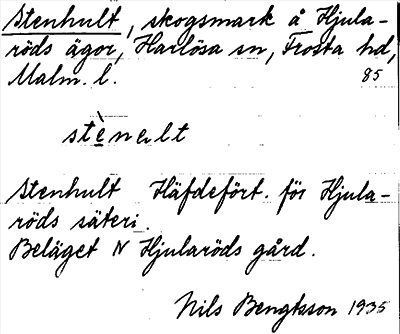 Stenhult, skogsmark å Hjula-
röds ägor, Harlösa sn, Frosta hd,
Malm. l. 85
stènelt
Stenhult Häfdefört. för Hjula-
röds säteri.
Beläget N Hjularöds gård.
Nils Bengtsson 1935